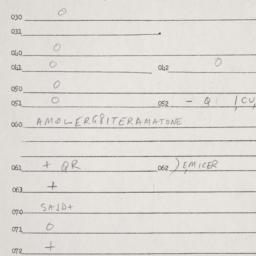 030 0
031
040 0
041 0 042 0
050 0
051 0 052 - Q:
060 AMOLERG8ITERAMATONE
061 + QR 062 ) EMICER
063 +
070 SAID+
071 0
072 +